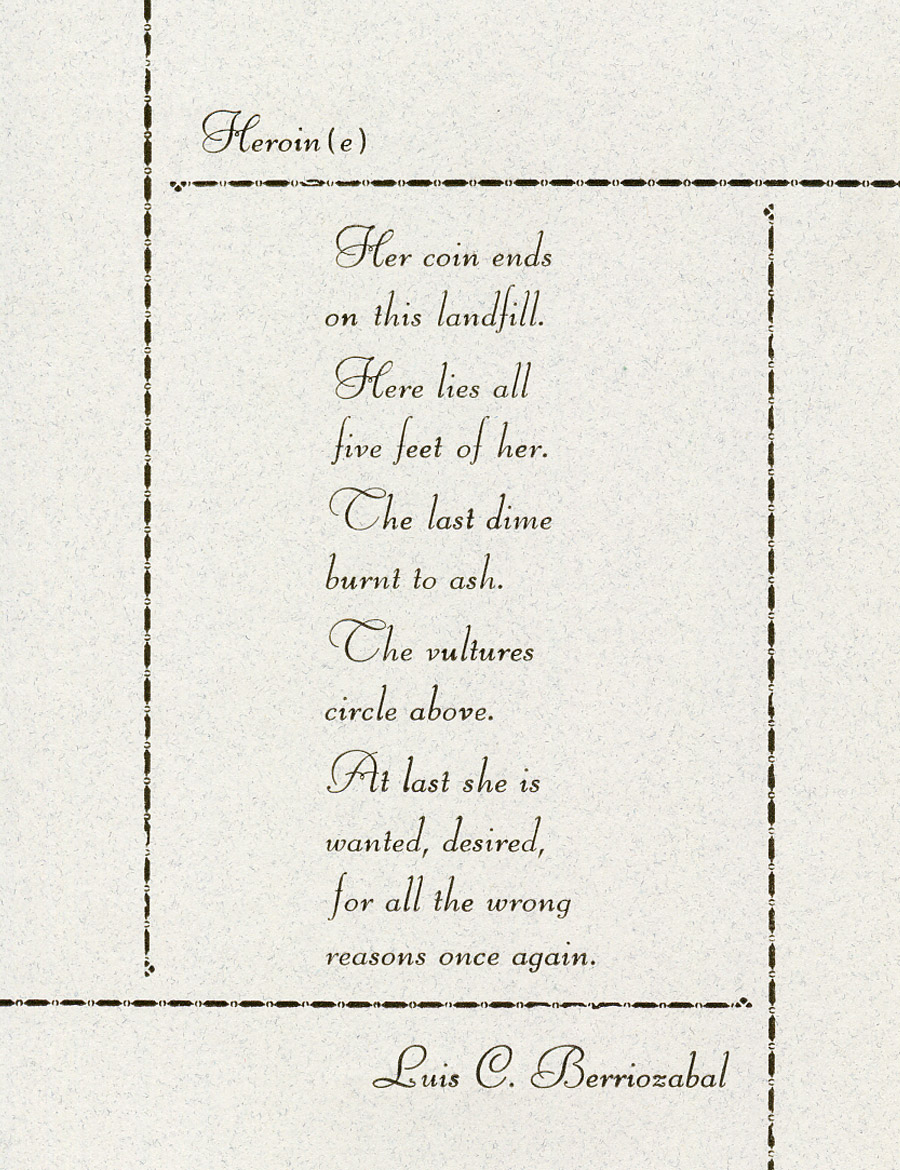 Heroin(e)
Her coin ends
on this landfill.
Here lies all
five feet of her.
The last dime
burnt to ash.
The vultures
circle above.
At last she is
wanted, desired,
for all the wrong
reasons once again.
Luis C. Berriozabal